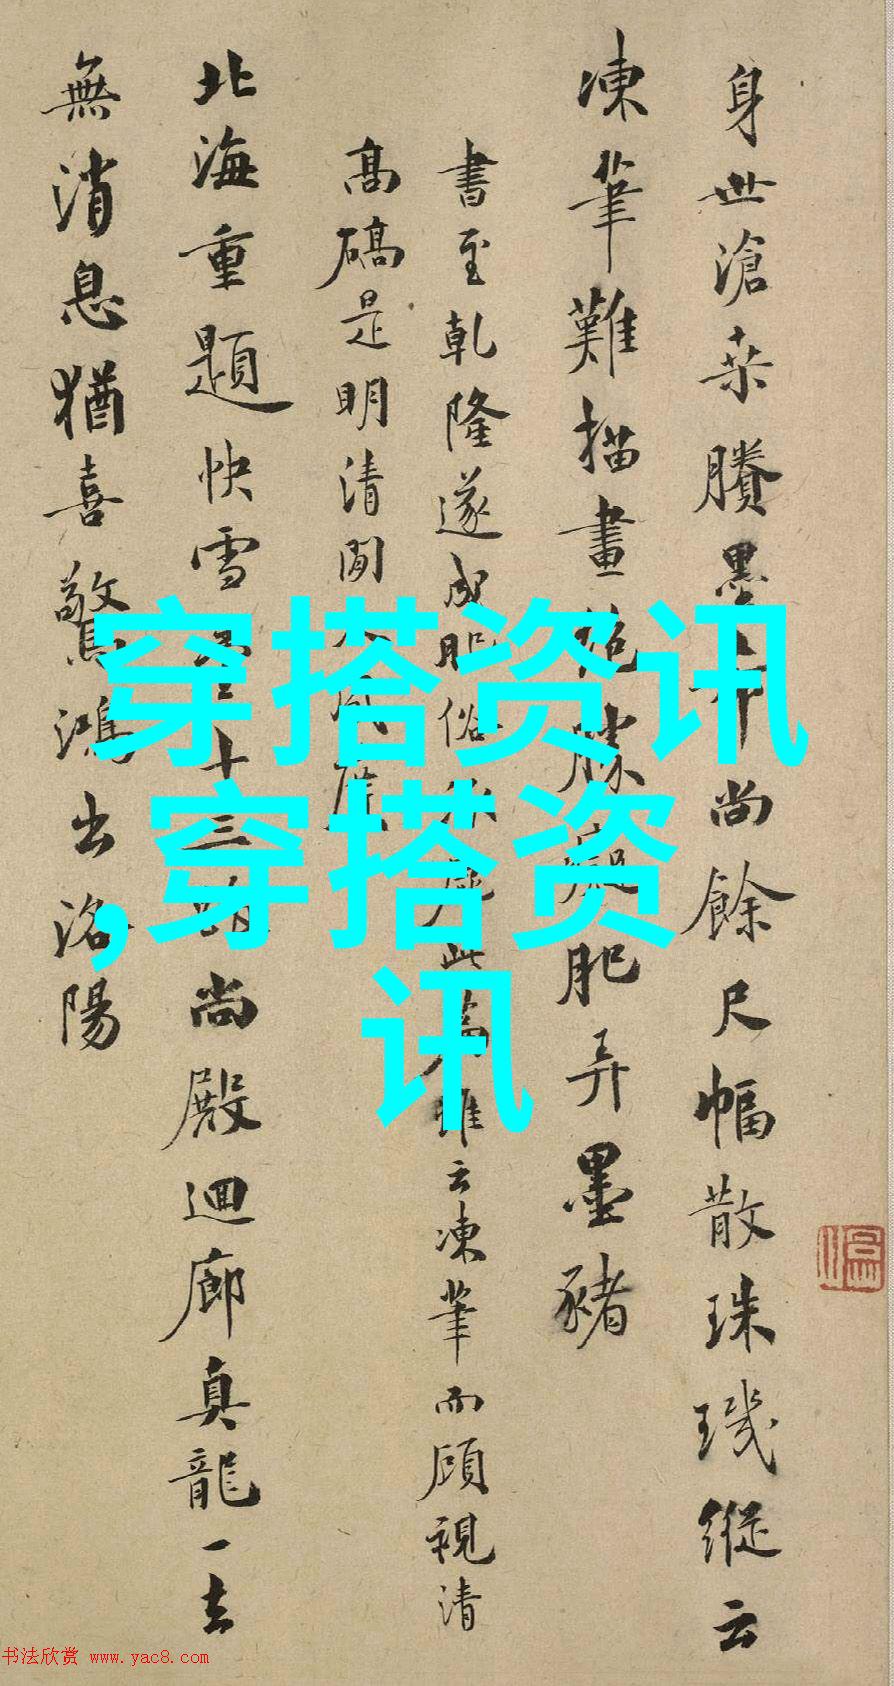 穿搭资讯
,穿搭资
讯
身世滄桑賸墨尚餘尺幅散珠璣縱云
凍筆難描畫絕勝癡肥弄墨豬
書至乾隆遂成肥俗此雖云凍筆而顧視清
高礄是明清間
北海重題快雪十三尚殿迴廊真龍一去
無消息猶喜驚鴻出洛陽
书法欣赏 www.yac8.com